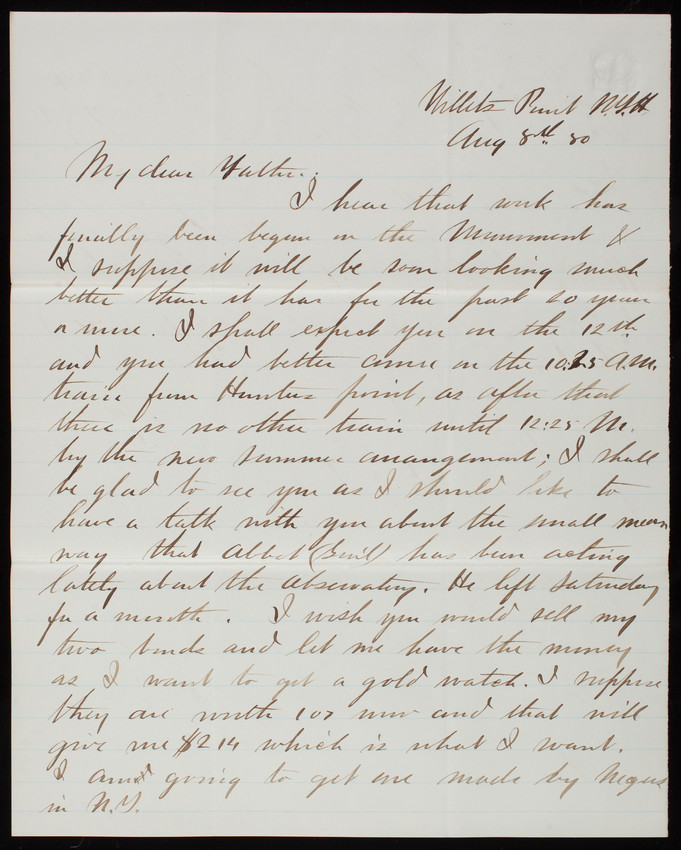 Willets Point N.Y.H.
Aug 3rd. 80
My dear Father:
I hear that work has
finally been begun on the Monument &
I suppose it will be soon looking much
better than it has for the past 20 years
or more. I shall expect you on the 12th
and you had better come on the 10.25 A.M.
train from Hunters point, as after that
there is no other train until 12:25 M.
by the new summer arrangement; I shall
be glad to see you as I should like to
have a talk with you about the small mean
way that Abbot (Genl) has been acting
lately about the observatory. He left Saturday
for a month. I wish you would sell my
two bonds and let me have the money
as I want to get a gold watch. I suppose
they are worth 107 now and that will
give me $214 which is what I want.
I am going to get one made by Negus
in N.Y.